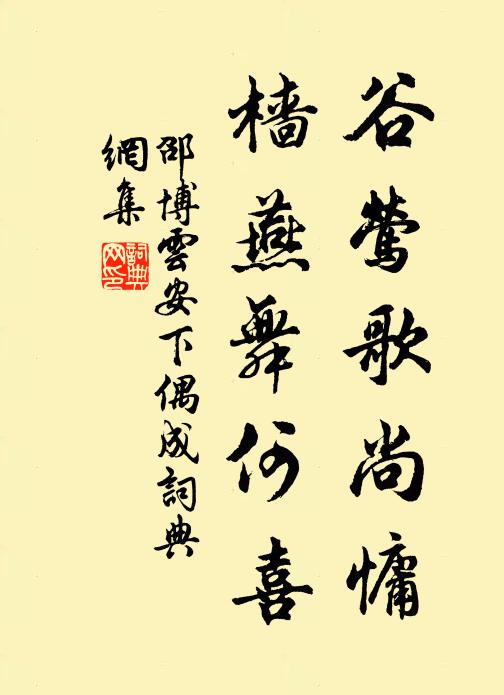 谷莺歌尚慵
樯燕舞何喜
邵博雲安下偶成詞典
網集
詞典
网印